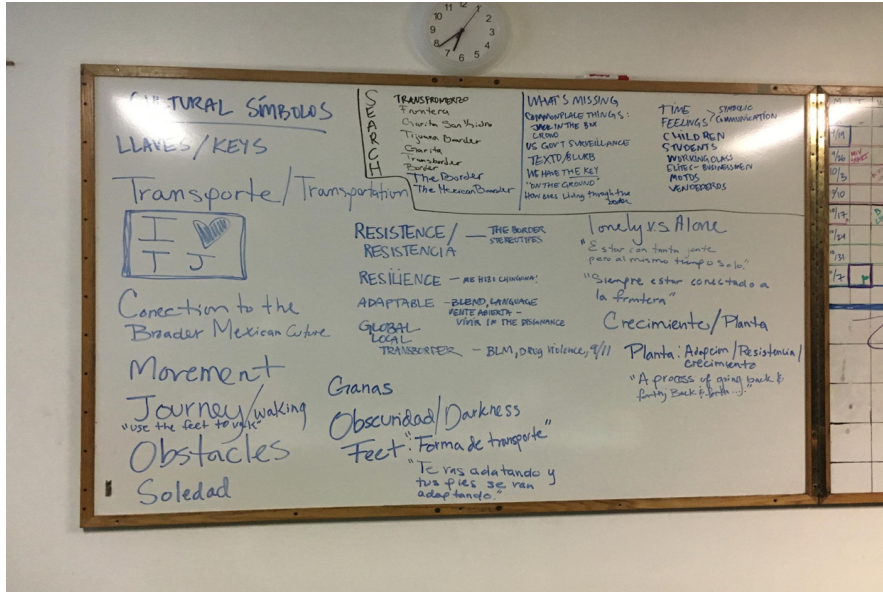 CULTURAL SÍMBOLOS
LLAVES/KEYS
Transporte/Transportation
I
T J
Conection to the
Broader Mexican Culture
Movement
Journey/waking
"use the feet to walk"
Obstacles
Soledad
SEARCH
TRANSFRONTERIZO
Frontera
Garita San Ysidro
Tijuana Boarder
Garita
Transborder
Border
The Border
The Mexican Boarder
WHAT'S MISSING
COMMONPLACE THINGS:
JACK IN THE BOX
US GOV'T SURVEILLANCE
TEXTO/BLURB
WE HAVE THE KEY
"ON THE GROUND"
How ones living through the
border
TIME
FEELINGS > SYMBOLIC
COMMUNICATION
CHILDREN
STUDENTS
WORKING CLASS
ELITES-BUSINESSMEN
MOTOS
VENDEDEROS
RESISTENCE/ — THE BORDER
RESISTENCIA STEREOTYPES
RESILIENCE - ME HIZO CHINGONA!
ADAPTABLE - BLEND, LANGUAGE
MENTE ABIERTA -
VIVIR IN THE DISSONANCE
GLOBAL
LOCAL
TRANSBORDER - BLM, DRUG VIOLENCE, 9/11
Ganas
Obscuridad/Darkness
Feet: "Forma de transporte"
"Te vas adatando y
tus pies se van
adaptando."
lonely vs Alone
"Estar con tanta jente
pero al mismo tiempo solo."
"Siempre estar conectado a
la frontera"
Crecimiento/Planta
Planta: Adapcion/Resistencia/
crecimiento
"A process of going back &
forth, Back & forth..."
10/3